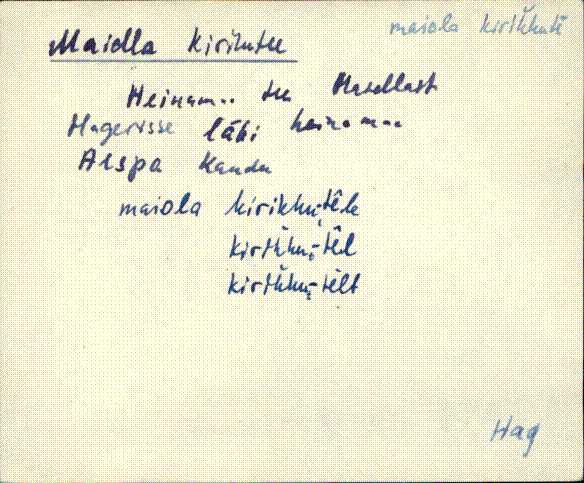 maiola kirikhutè
Maidla kirikutee
Heinama.. tee Maidlast
Hagerisse läbi heinamaa
Aespa kaudu
maiola kirikhu-tèle
kirikhu-tèl
kirikhu-tèlt
Hag